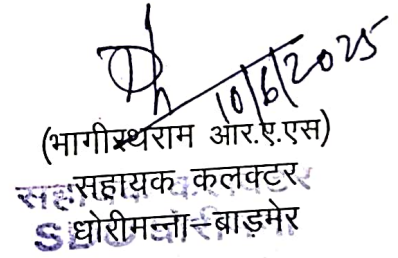 10/6/2025
(भागीरथराम आर.ए.एस)
सहायक कलक्टर
धोरीमन्ना–बाड़मेर